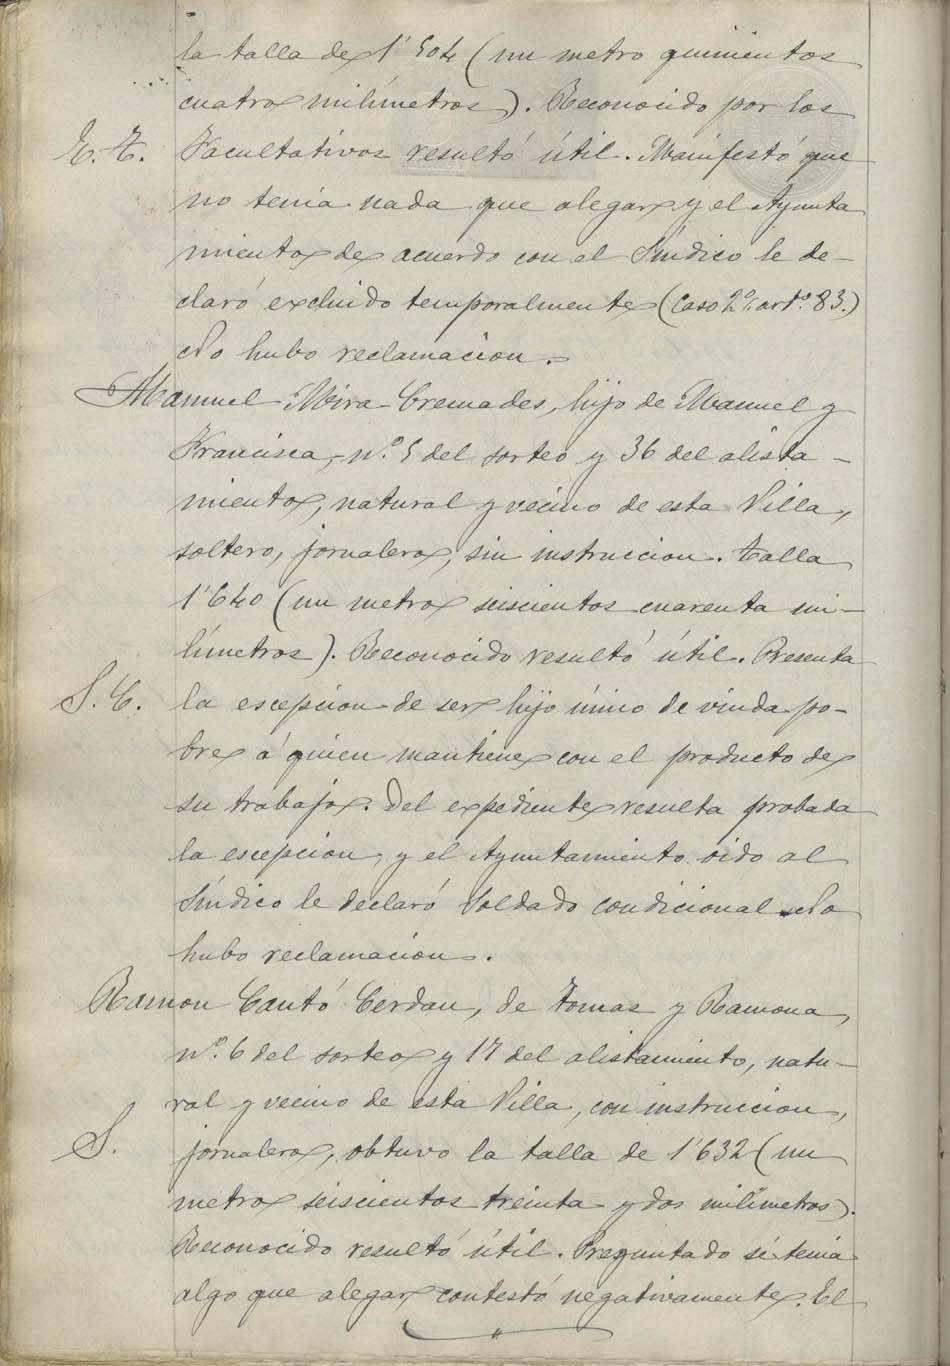 la talla de 1'504 (un metro quinientos
cuatro milímetros). Reconocido por los
E. T. Facultativos resultó útil. Manifestó que
no tenia nada que alegar y el Ayunta
miento de acuerdo con el Síndico le de-
claró excluido temporalmente (Caso 2º art.º 83.)
No hubo reclamacion.
Manuel Mira Cremades, hijo de Manuel y
Francisca, n.º 5 del sorteo y 36 del alista-
miento, natural y vecino de esta Villa,
soltero, jornalero, sin instruccion. Talla
1'640 (un metro seiscientos cuarenta mi-
límetros). Reconocido resultó útil. Presenta
S. C. la escepcion de ser hijo único de viuda po-
bre á quien mantiene con el producto de
su trabajo. Del expediente resulta probada
la escepcion, y el Ayuntamiento oido al
Síndico le declaró Soldado condicional. No
hubo reclamacion.
Ramon Cantó Cerdan, de Tomas y Ramona,
n.º 6 del sorteo y 17 del alistamiento, natu-
ral y vecino de esta Villa, con instruccion,
S. jornalero, obtuvo la talla de 1'632 (un
metro seiscientos treinta y dos milímetros).
Reconocido resultó útil. Preguntado si tenia
algo que alegar contestó negativamente. El